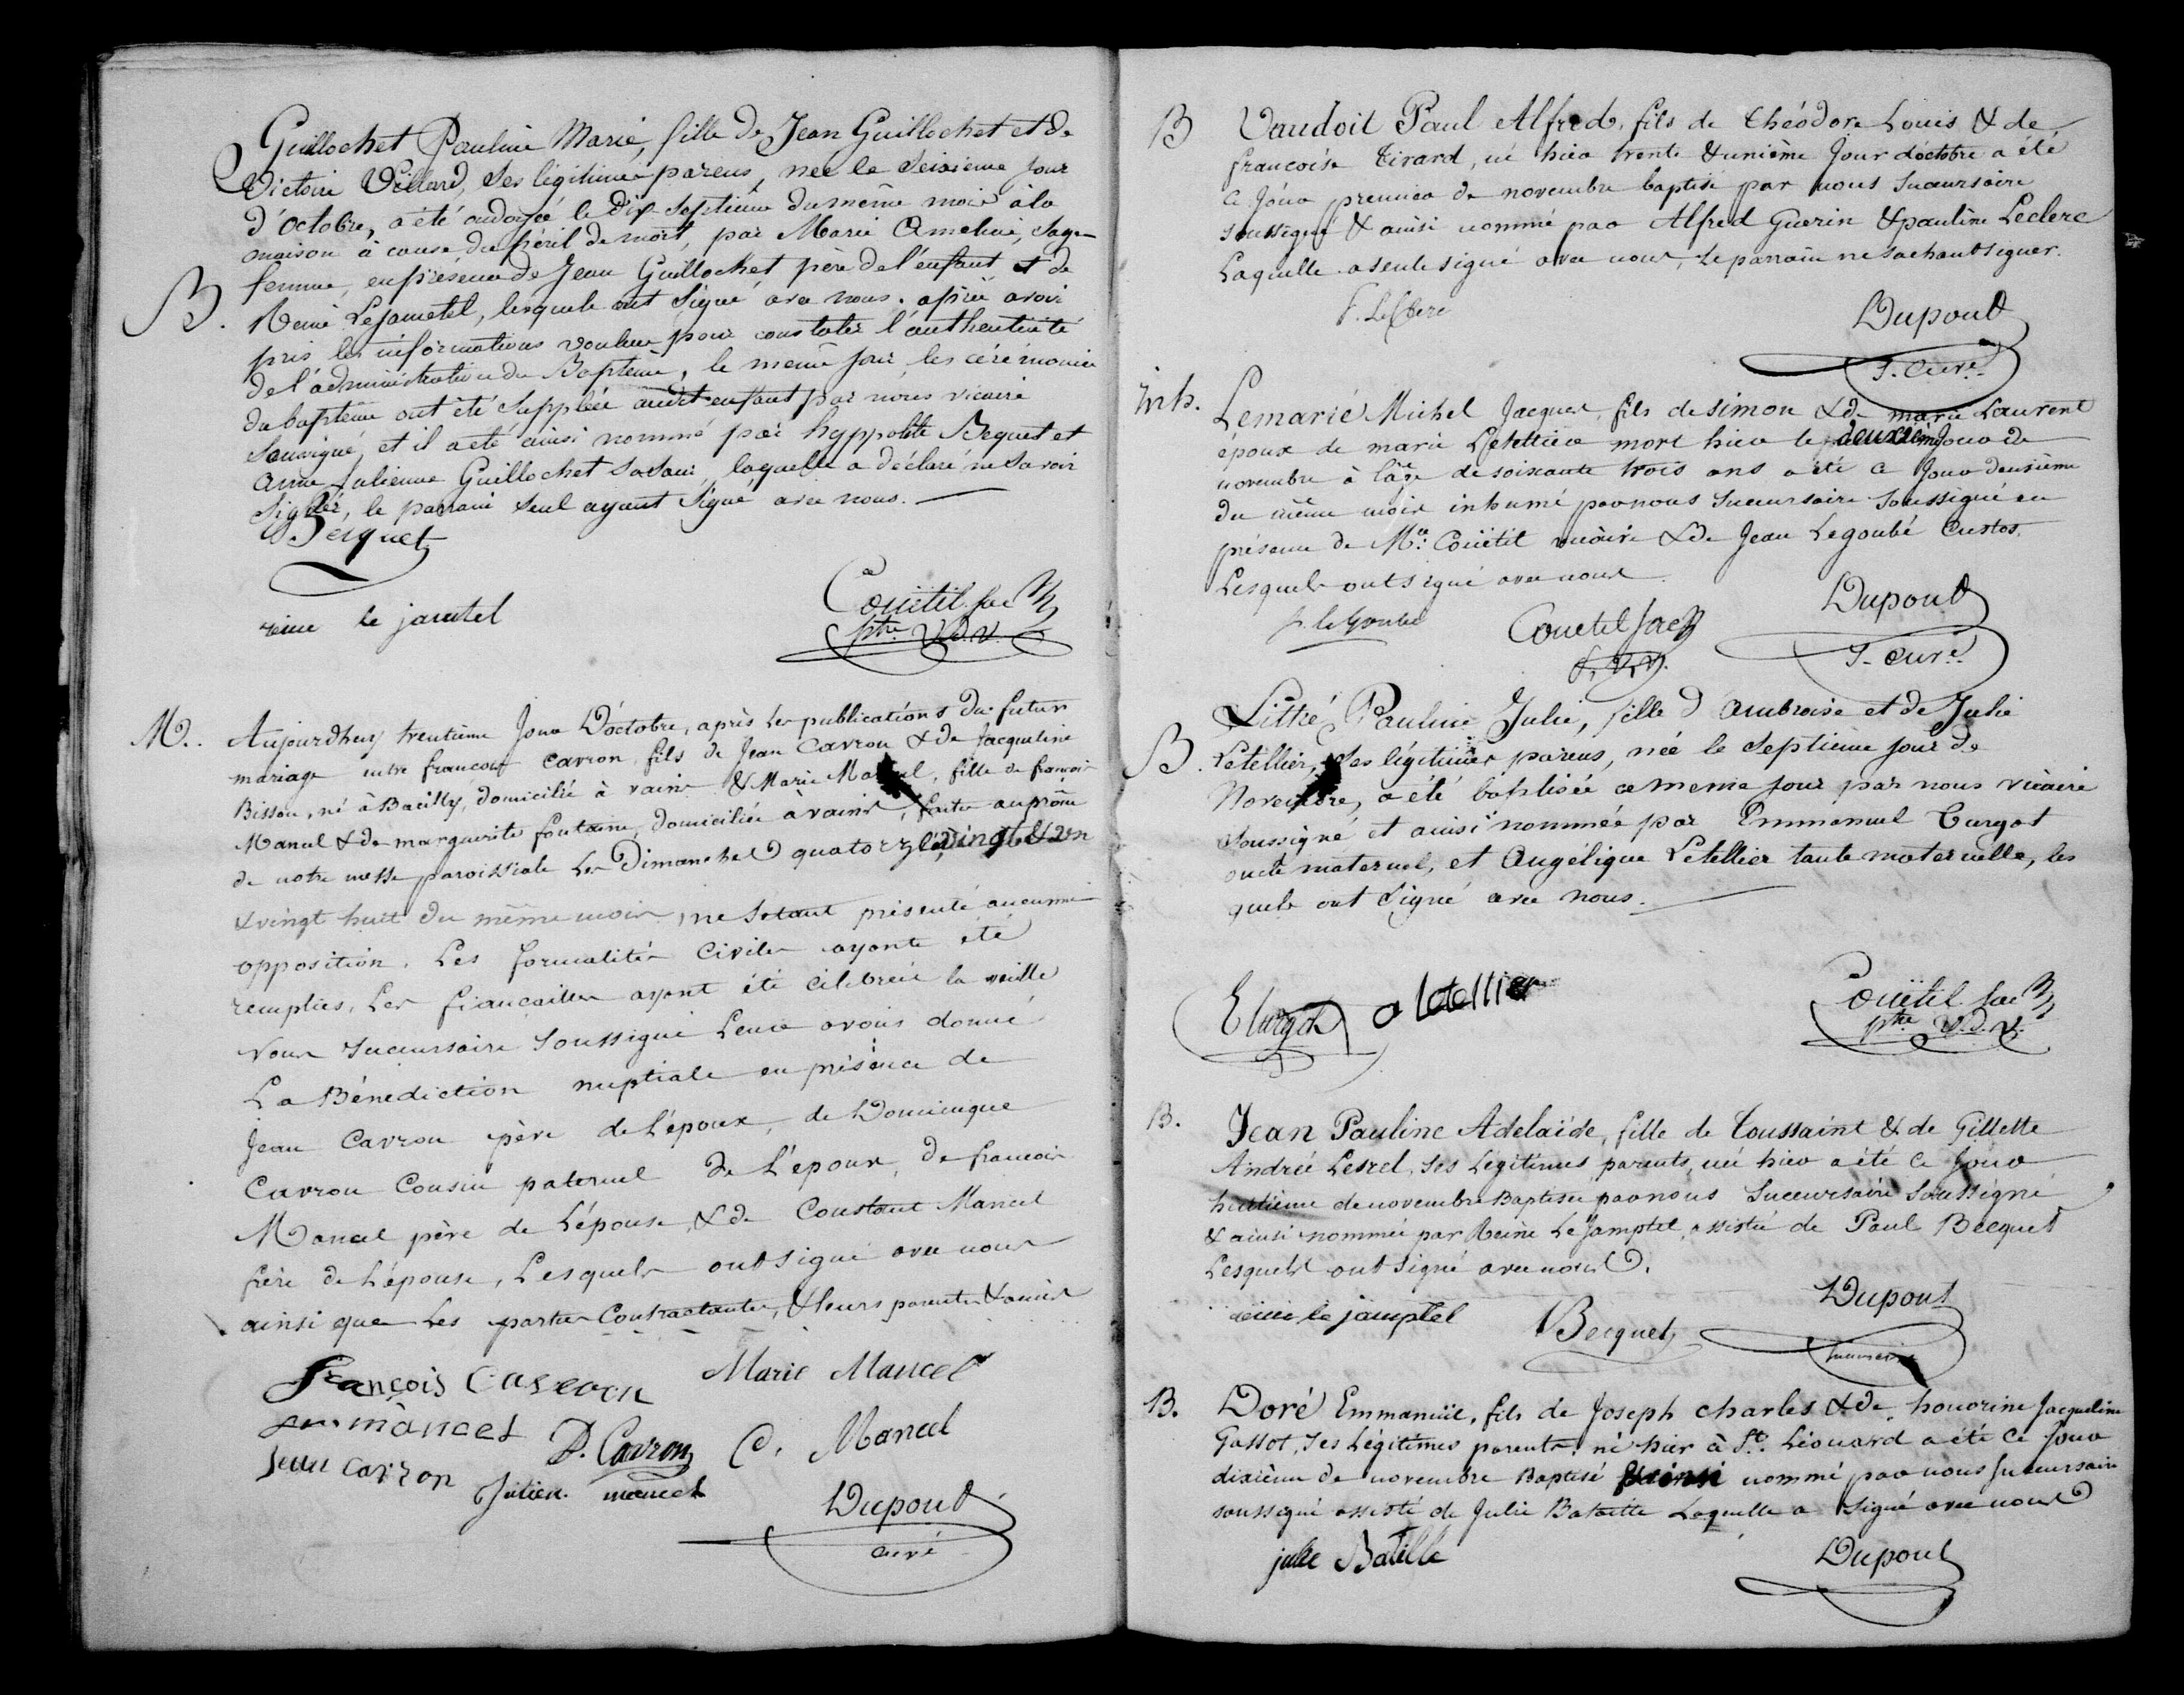 Guillochet Pauline Marie, fille de Jean Guillochet et de
Victoire Villard, ses légitimes parens, née le seizieme jour
d'Octobre, a été ondoyée le dix septieme du même mois à la
maison à cause du péril de mort, par Marie Ameline, sage
femme, en présence de Jean Guillochet père de l'enfant et de
B. Reine Lejametel, lesquels ont signé avec nous. après avoir
pris les informations voulues pour constater l'authenticité
de l'administration du Baptême, le même jour, les cérémonies
du baptême ont été suppléées audit enfant par nous vicaire
soussigné, et il a été ainsi nommé par hyppolite Bequet et
Anne Julienne Guillochet sa sœur, laquelle a déclaré ne savoir
signer, le parrain seul ayant signé avec nous.
Becquet
reine le jamtel
Coüetil sac
ptre V.D.V.
M. Aujourdhuy trentieme Jour D'octobre, après les publications du futur
mariage entre francois Cavron fils de Jean Cavron & de Jacqueline
Bisson, né à Bacilly, domicilié à vains & Marie Mancel, fille de francois
Mancel & de marguerite fontaine, domiciliée à vains, faites au prône
de notre messe paroissiale les Dimanches quatorze, vingt & un
& vingt huit du même mois, ne s'etant présenté aucune
opposition. Les formalités Civiles ayant été
remplies, Les fiançailles ayant été célébrées la veille
Nous succursaire soussigné Leur avons donné
La Bénédiction nuptiale en présence de
Jean Cavron père de l'époux, de Dominique
Cavron Cousin paternel de L'époux, de francois
Mancel père de L'épouse, & de Constant Mancel
frère de L'épouse, Lesquels ont signé avec nous
ainsi que Les parties Contractantes, & leurs parents & amis
François Cavron Marie Mancel
mancel D. Cavron C. Mancel
Jean cavron Julien mancel
Dupont
curé
B Vaudoit Paul Alfred, fils de théodore Louis & de
françoise Tirard, né hier trente & unième Jour d'octobre a été
ce Jour premier de novembre baptisé par nous Succursaire
soussigné & ainsi nommé par Alfred Guerin & pauline Leclerc
Laquelle a seule signé avec nous, Le parrain ne sachant signer.
P. Leclerc
Dupont
S. Curé
inh. Lemarié Michel Jacques, fils de simon & de marie Laurent
époux de marie Letellier mort hier le deuxième Jour de
novembre à l'âge de soixante trois ans a été ce Jour troisième
du même mois inhumé par nous Succursaire soussigné en
présence de Mr. Coüetil vicaire & de Jean Legoubé Custos.
Lesquels ont signé avec nous
J. leGoubé
Couetil sac
P. V. D. V.
Dupont
S. Curé
Littré Pauline Julie, fille d'Ambroise et de Julie
B. Letellier, ses légitimes parens, née le septieme jour de
Novembre, a été baptisée ce meme jour par nous vicaire
soussigné et ainsi nommée par Emmanuel Turgot
oncle maternel, et Angélique Letellier tante maternelle, les
quels ont signé avec nous.
E turgot a letellier
Coüetil sac
ptre V.D.V.
B. Jean Pauline Adelaïde, fille de Toussaint & de Gillette
Andrée Lesrel, ses Légitimes parents, née hier a été ce Jour
huitième de novembre Baptisée par nous Succursaire soussigné
& ainsi nommée par Reine Le Jamptel, assistée de Paul Becquet
Lesquels ont signé avec nous.
reine le jamptel
Becquet
Dupont
succursaire
B. Doré Emmanüel, fils de Joseph charles & de honorine Jacqueline
Gassot, ses Légitimes parents, né hier à St. Léonard a été ce Jour
dixième de novembre Baptisé & ainsi nommé par nous succursaire
soussigné assisté de Julie Bataille Laquelle a signé avec nous
julie Batille
Dupont